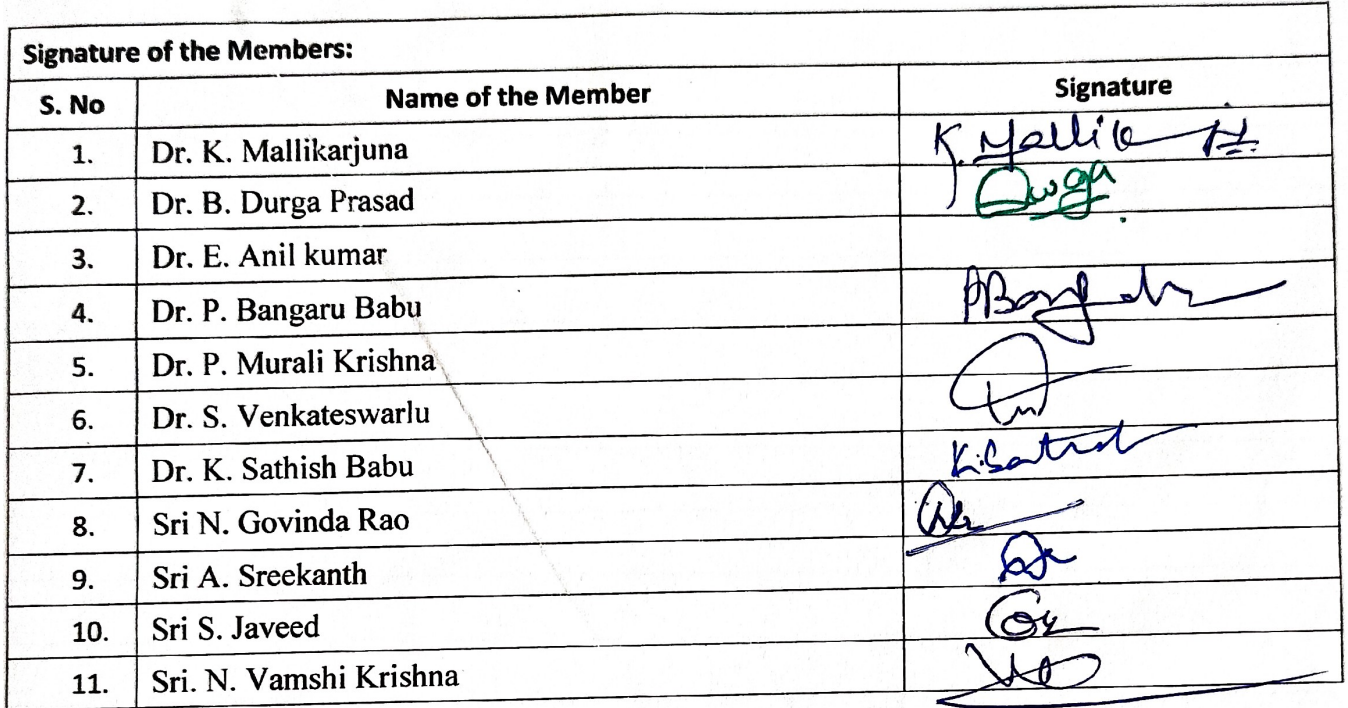 Signature of the Members:
S. No Name of the Member Signature
1. Dr. K. Mallikarjuna K. Mallik
2. Dr. B. Durga Prasad Durga
3. Dr. E. Anil kumar
4. Dr. P. Bangaru Babu
5. Dr. P. Murali Krishna
6. Dr. S. Venkateswarlu
7. Dr. K. Sathish Babu K. Satish
8. Sri N. Govinda Rao
9. Sri A. Sreekanth
10. Sri S. Javeed
11. Sri. N. Vamshi Krishna